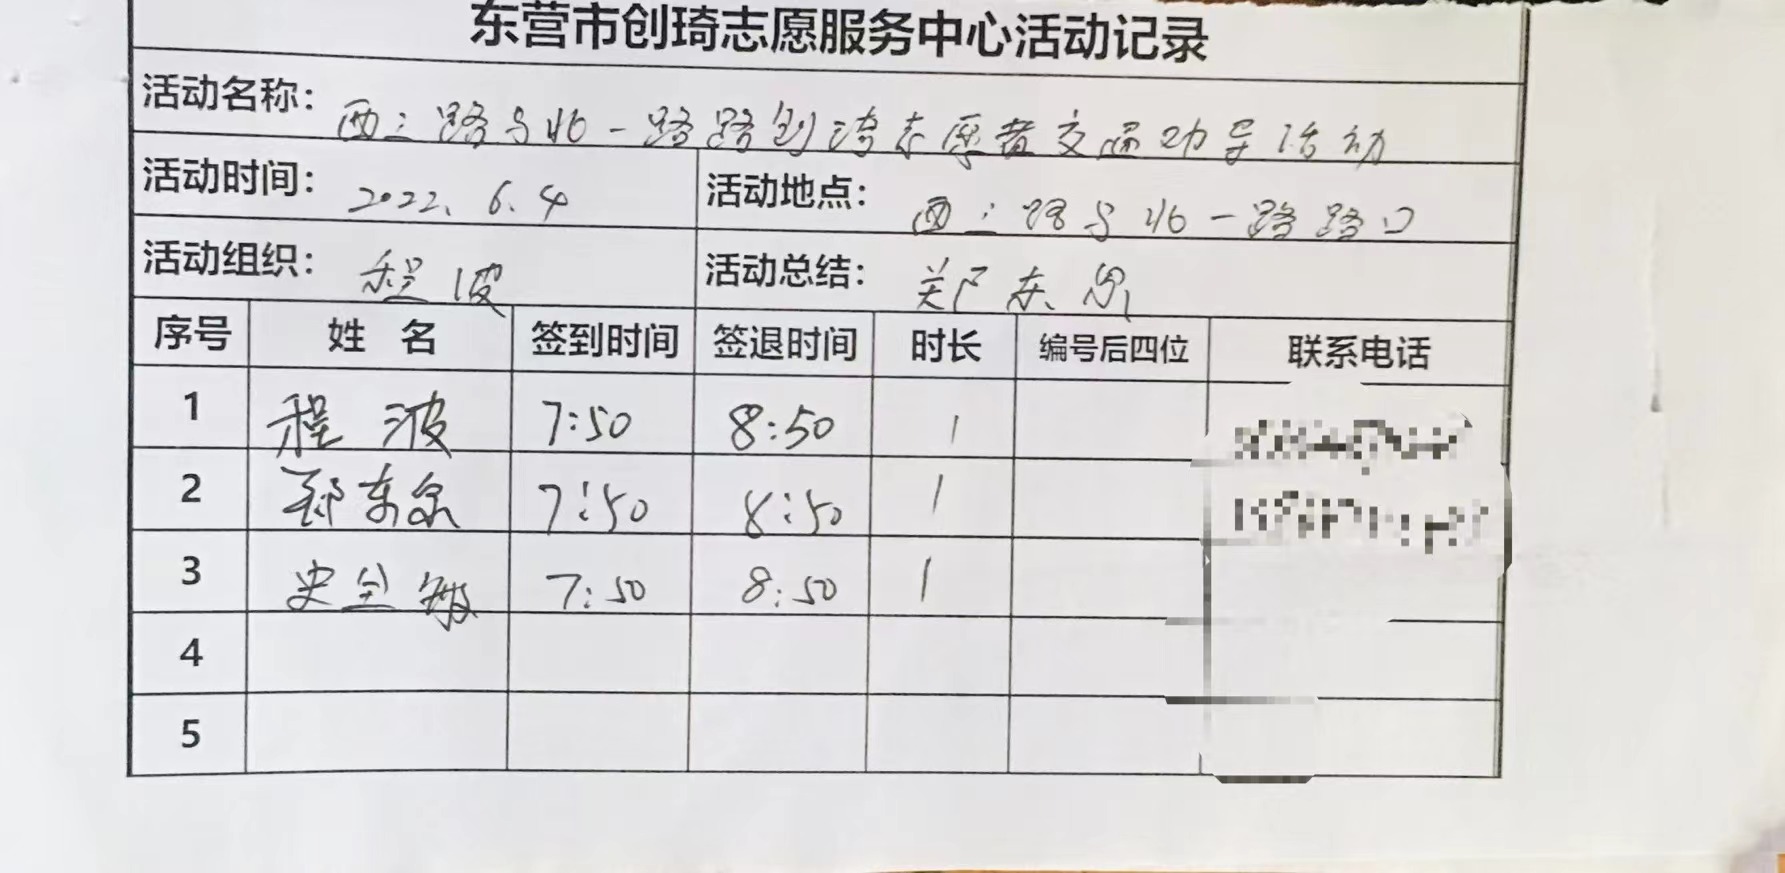 东营市创琦志愿服务中心活动记录
活动名称： 西三路与北一路路创琦志愿者交通劝导活动
活动时间： 2022.6.4 活动地点： 西三路与北一路路口
活动组织： 程波 活动总结： 郑东
序号 姓名 签到时间 签退时间 时长 编号后四位 联系电话
1 程波 7:50 8:50 1
2 郑东 7:50 8:50 1
3 史全 7:50 8:50 1
4
5